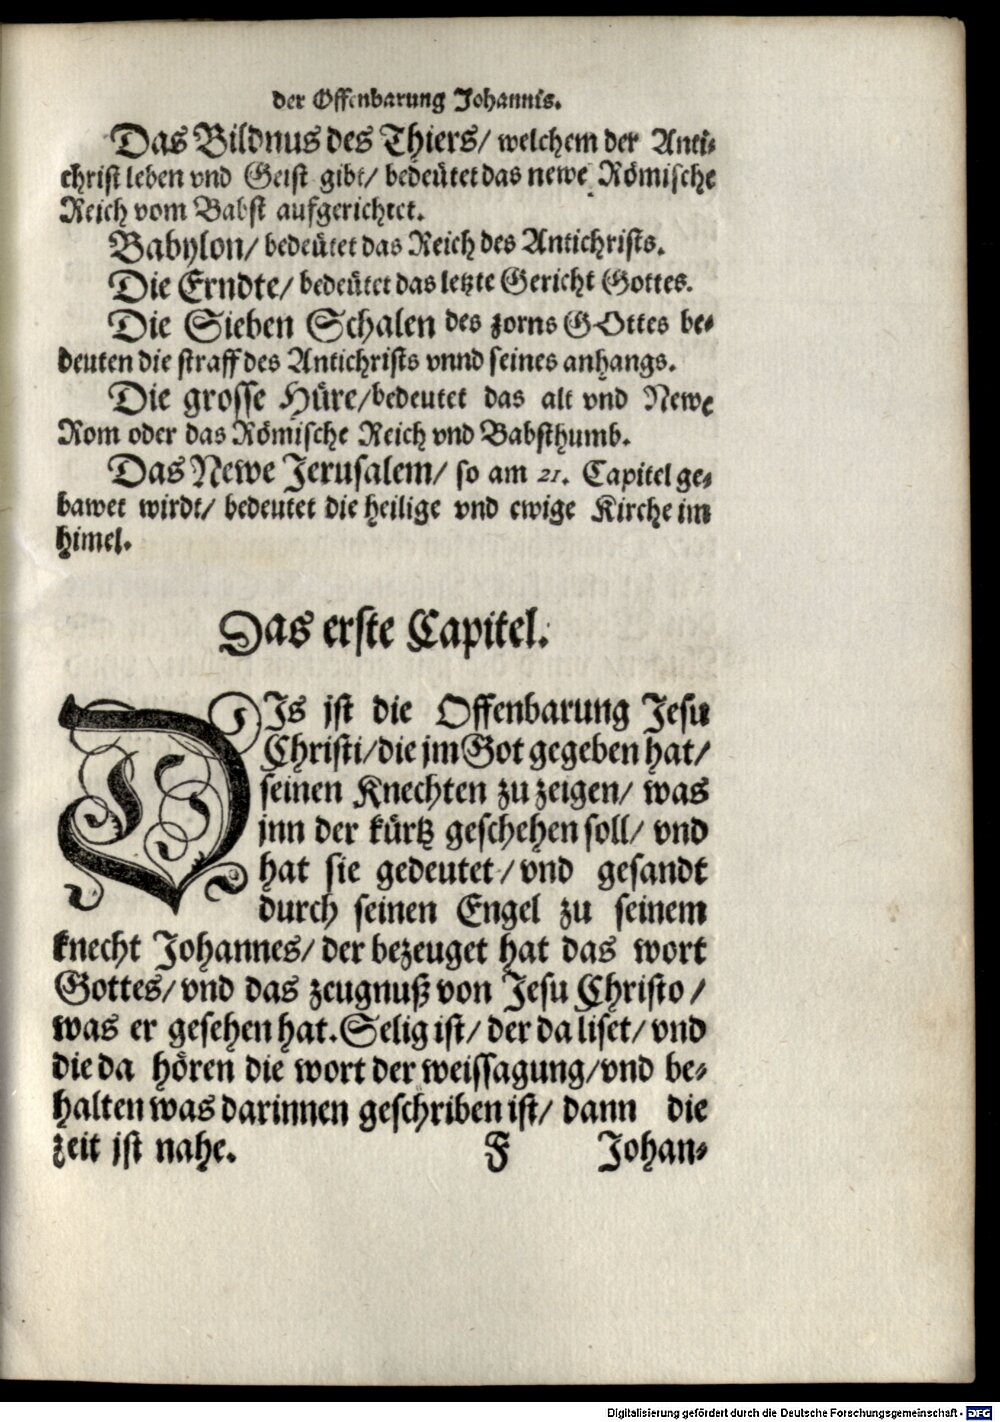 der Offenbarung Johannis.
Das Bildnus des Thiers/ welchem der Anti-
christ leben vnd Geist gibt/ bedeütet das newe Römische
Reich vom Babst aufgerichtet.
Babylon/ bedeütet das Reich des Antichrists.
Die Erndte/ bedeütet das letzte Gericht Gottes.
Die Sieben Schalen des zorns GOttes be-
deuten die straff des Antichrists vnnd seines anhangs.
Die grosse Hüre/ bedeutet das alt vnd Newe
Rom oder das Römische Reich vnd Babsthumb.
Das Newe Jerusalem/ so am 21. Capitel ge-
bawet wirdt/ bedeutet die heilige vnd ewige Kirche im
himel.
Das erste Capitel.
DIs jst die Offenbarung Jesu
Christi/ die jm Got gegeben hat/
seinen Knechten zu zeigen/ was
jnn der kürtz geschehen soll/ vnd
hat sie gedeutet/ vnd gesandt
durch seinen Engel zu seinem
knecht Johannes/ der bezeuget hat das wort
Gottes/ vnd das zeugnuß von Jesu Christo/
was er gesehen hat. Selig ist/ der da liset/ vnd
die da hören die wort der weissagung/ vnd be-
halten was darinnen geschriben ist/ dann die
zeit jst nahe. F Johan-
Digitalisierung gefördert durch die Deutsche Forschungsgemeinschaft - DFG